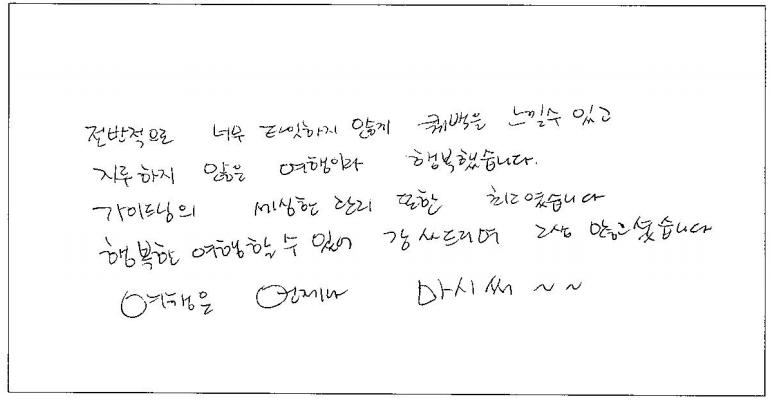 전반적으로 너무 타잇하지 않게 퀘백을 느낄수 있고
지루하지 않은 여행이라 행복했습니다.
가이드님의 세심한 관리 또한 최고였습니다
행복한 여행할 수 있어 감사드리며 고생 많으셨습니다
여행은 언제나 마시써 ~ ~